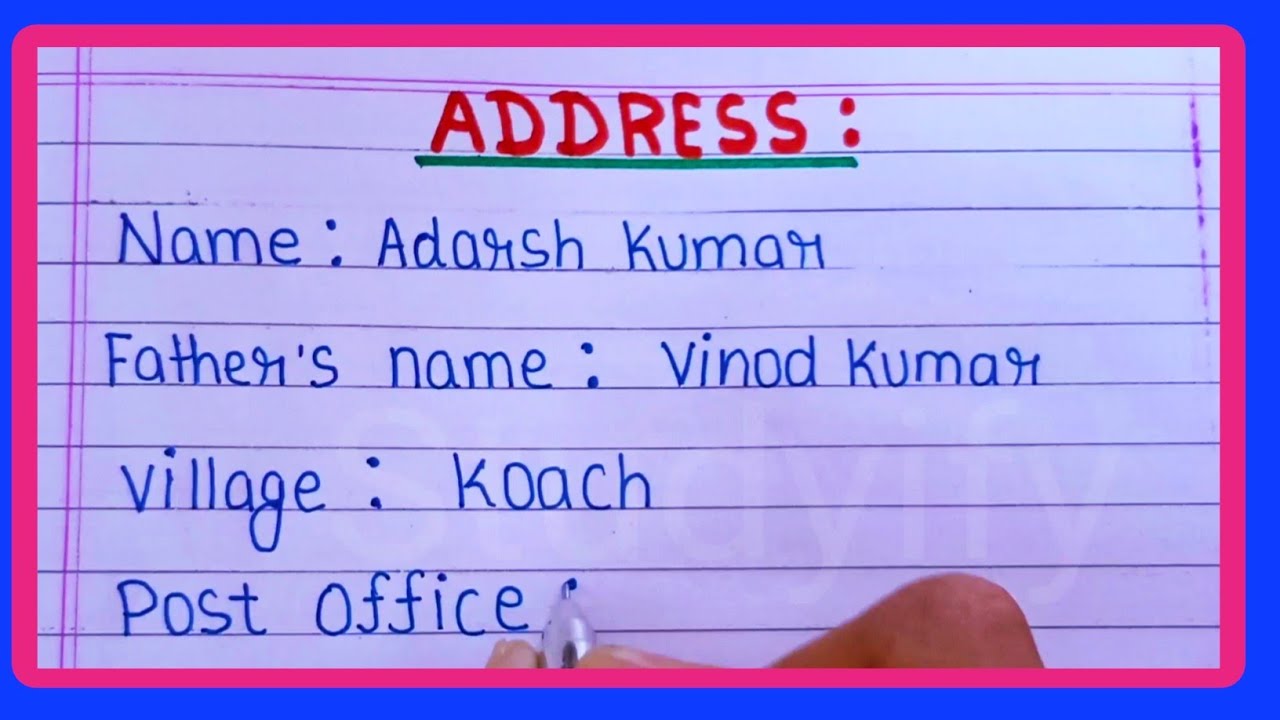 ADDRESS :
Name : Adarsh Kumar
Father's name : Vinod Kumar
Village : Koach
Post Office :
Studyify